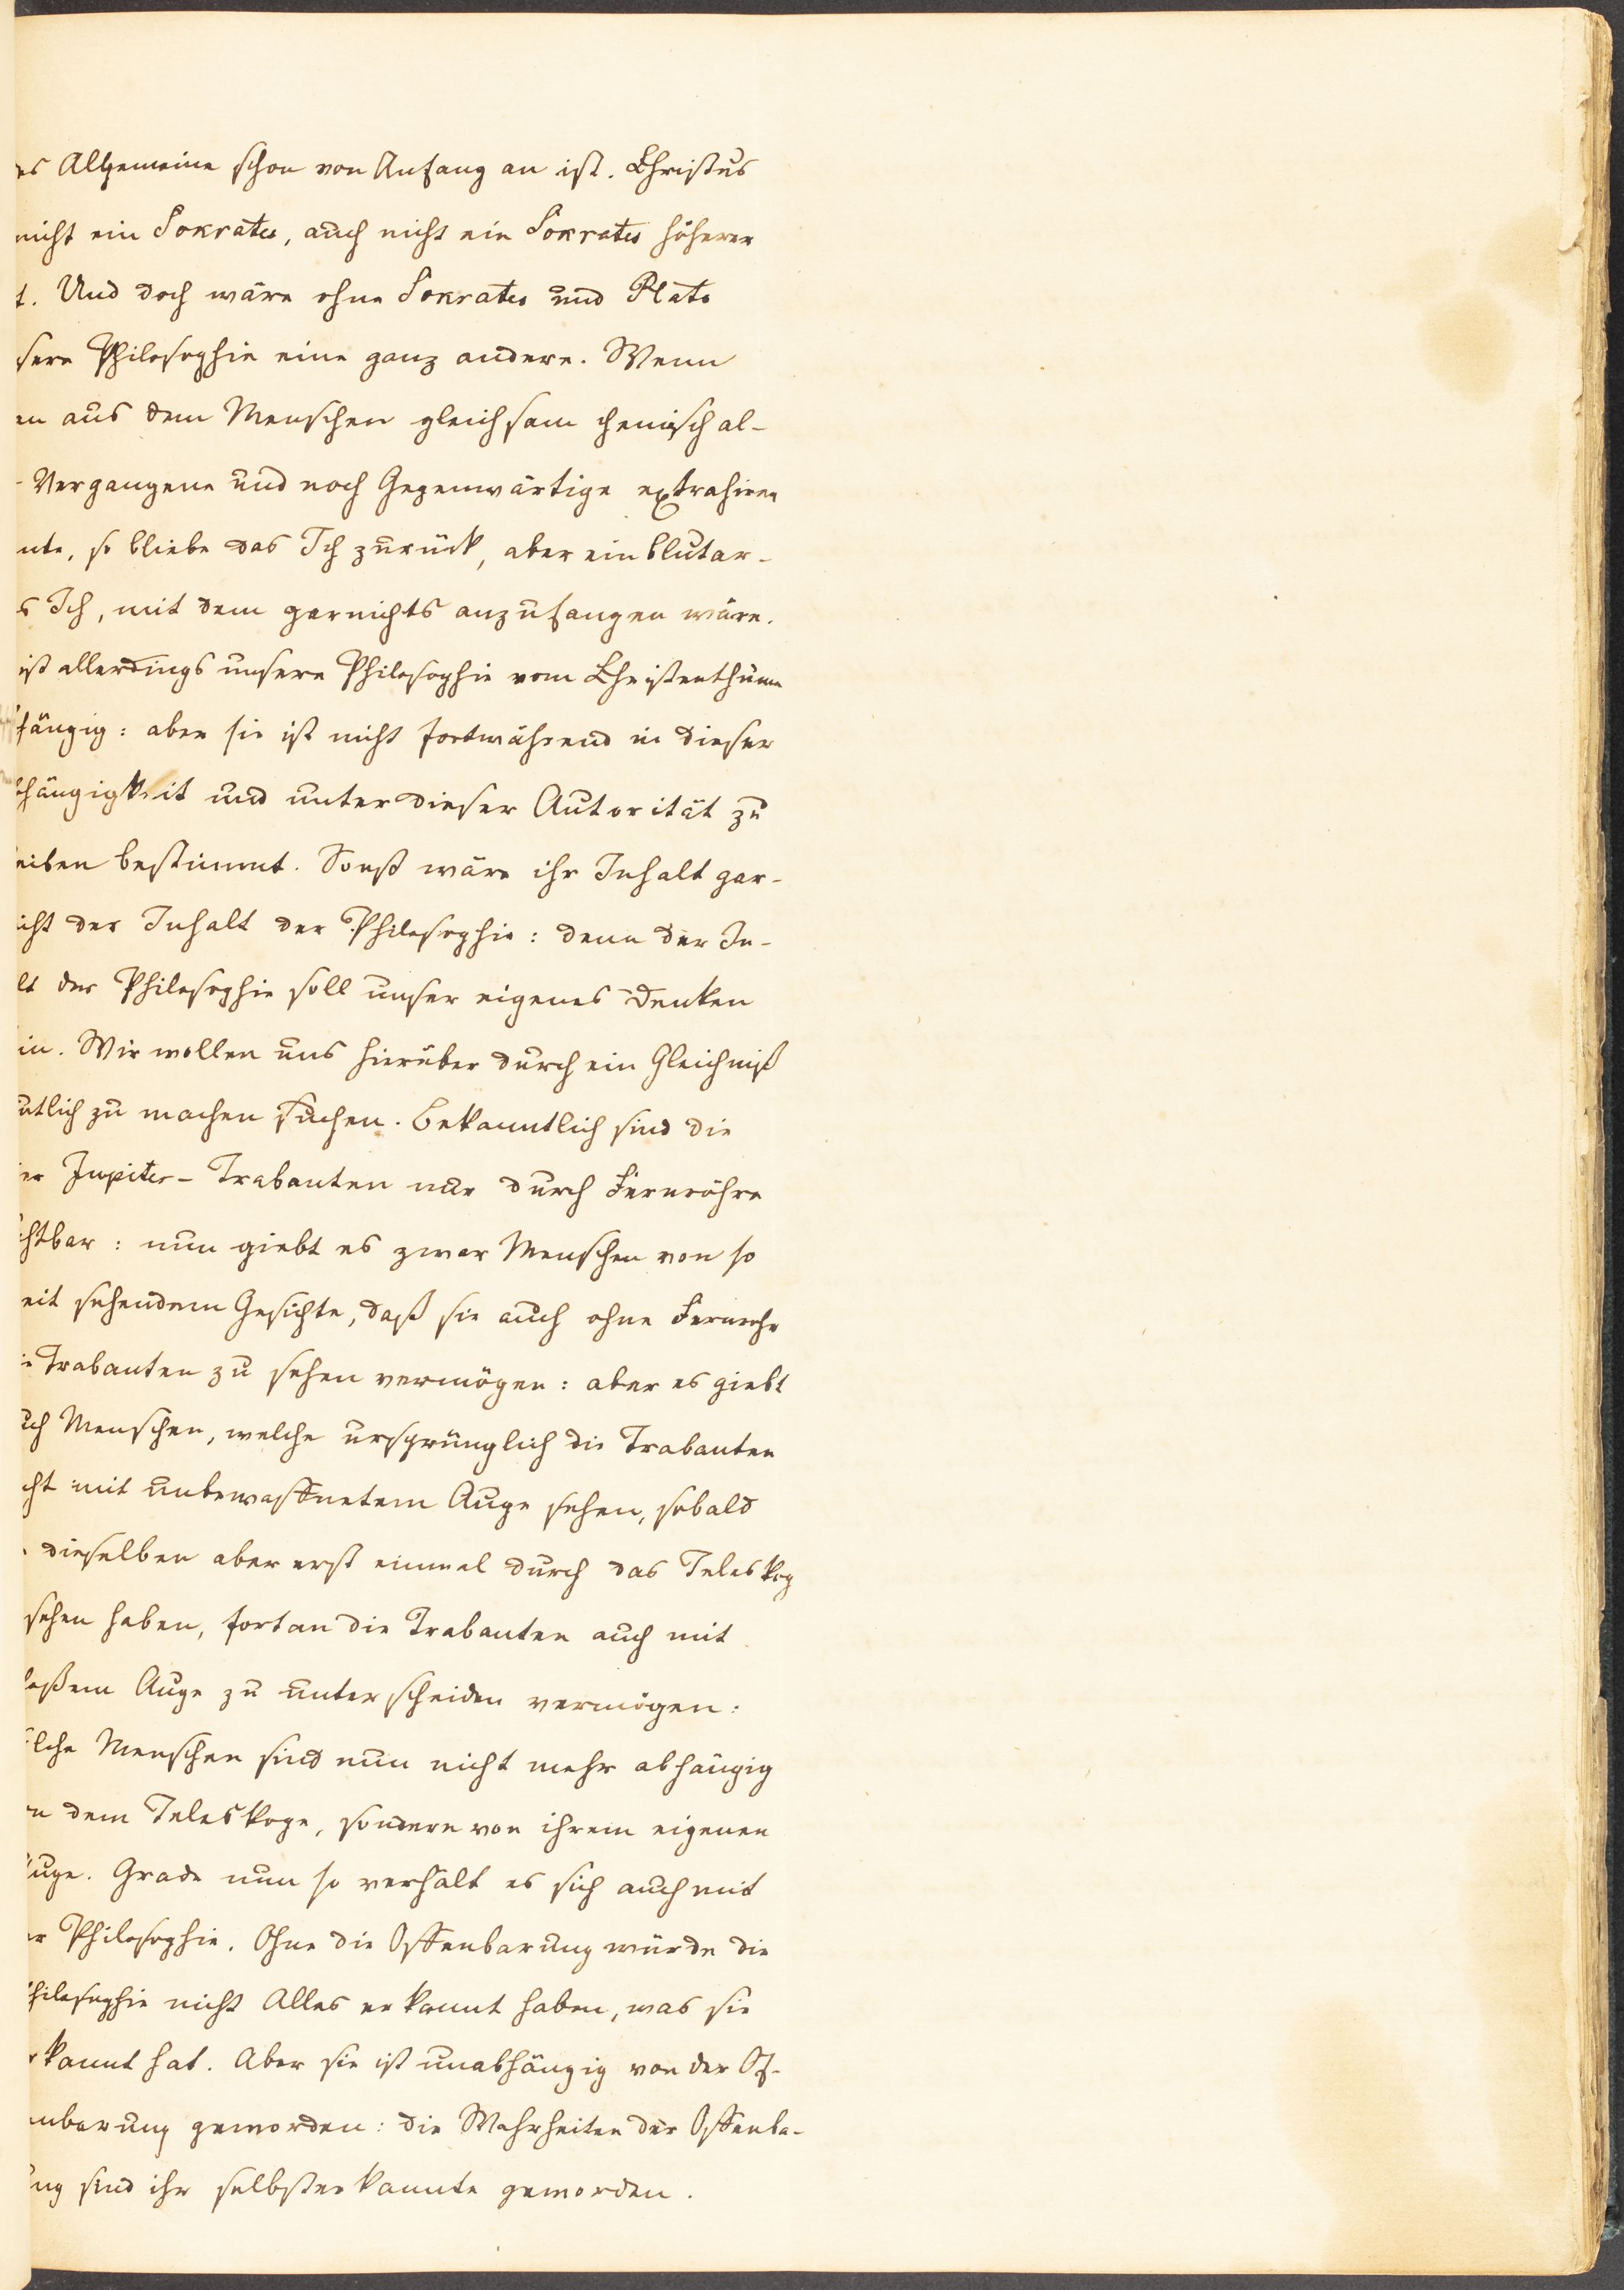 es Allgemeine schon von Anfang an ist. Christus
nicht ein Sokrates, auch nicht ein Sokrates höherer
t. Und doch wäre ohne Sokrates und Plato
sere Philosophie eine ganz andere. Wenn
en aus dem Menschen gleichsam chemisch al-
- Vergangene und noch Gegenwärtige extrahiren
nte, so bliebe das Ich zurück, aber ein blutar-
s Ich, mit dem garnichts anzufangen wäre.
ist allerdings unsere Philosophie vom Christenthume
hängig: aber sie ist nicht fortwährend in dieser
hängigkeit und unter dieser Autorität zu
eiben bestimmt. Sonst wäre ihr Inhalt gar-
icht der Inhalt der Philosophie: denn der In-
lt der Philosophie soll unser eigenes Denken
in. Wir wollen uns hierüber durch ein Gleichniß
utlich zu machen suchen. Bekanntlich sind die
er Jupiter-Trabanten nur durch Fernröhre
chtbar: nun giebt es zwar Menschen von so
eit sehendem Gesichte, daß sie auch ohne Fernrohr
ie Trabanten zu sehen vermögen: aber es giebt
uch Menschen, welche ursprünglich die Trabanten
cht mit unbewaffnetem Auge sehen, sobald
dieselben aber erst einmal durch das Teleskop
sehen haben, fortan die Trabanten auch mit
loßem Auge zu unterscheiden vermögen:
olche Menschen sind nun nicht mehr abhängig
on dem Teleskope, sondern von ihrem eigenen
Auge. Grade nun so verhält es sich auch mit
er Philosophie. Ohne die Offenbarung würde die
hilosophie nicht Alles erkannt haben, was sie
rkannt hat. Aber sie ist unabhängig von der Of-
nbarung geworden: die Wahrheiten der Offenba-
ung sind ihr selbsterkannte geworden.